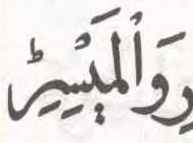 رِ وَالْمَيْسِرِؕ